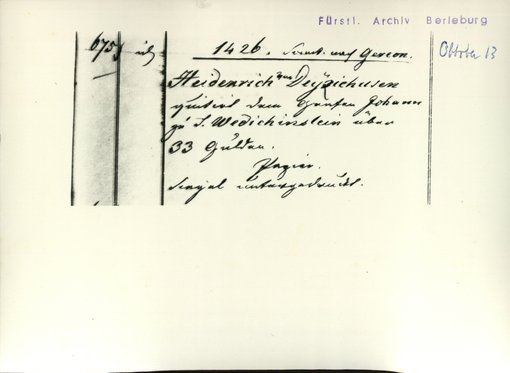 Fürstl. Archiv Berleburg
Oktober 13
675 1426. nach Gereon.
Heidenrich von
quitirt dem Grafen Johann
zu S. Wedichinstein über
33 Gulden.
Papier.
Siegel untergedruckt.